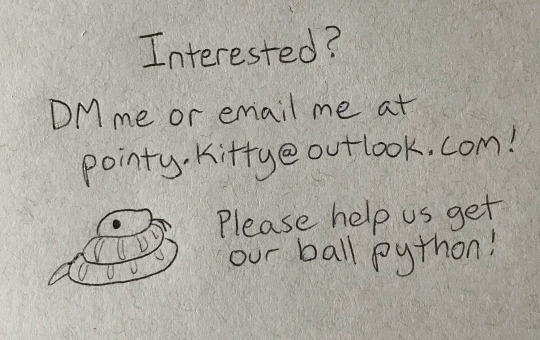 Interested?
DM me or email me at
pointy.kitty@outlook.com!
Please help us get
our ball python!